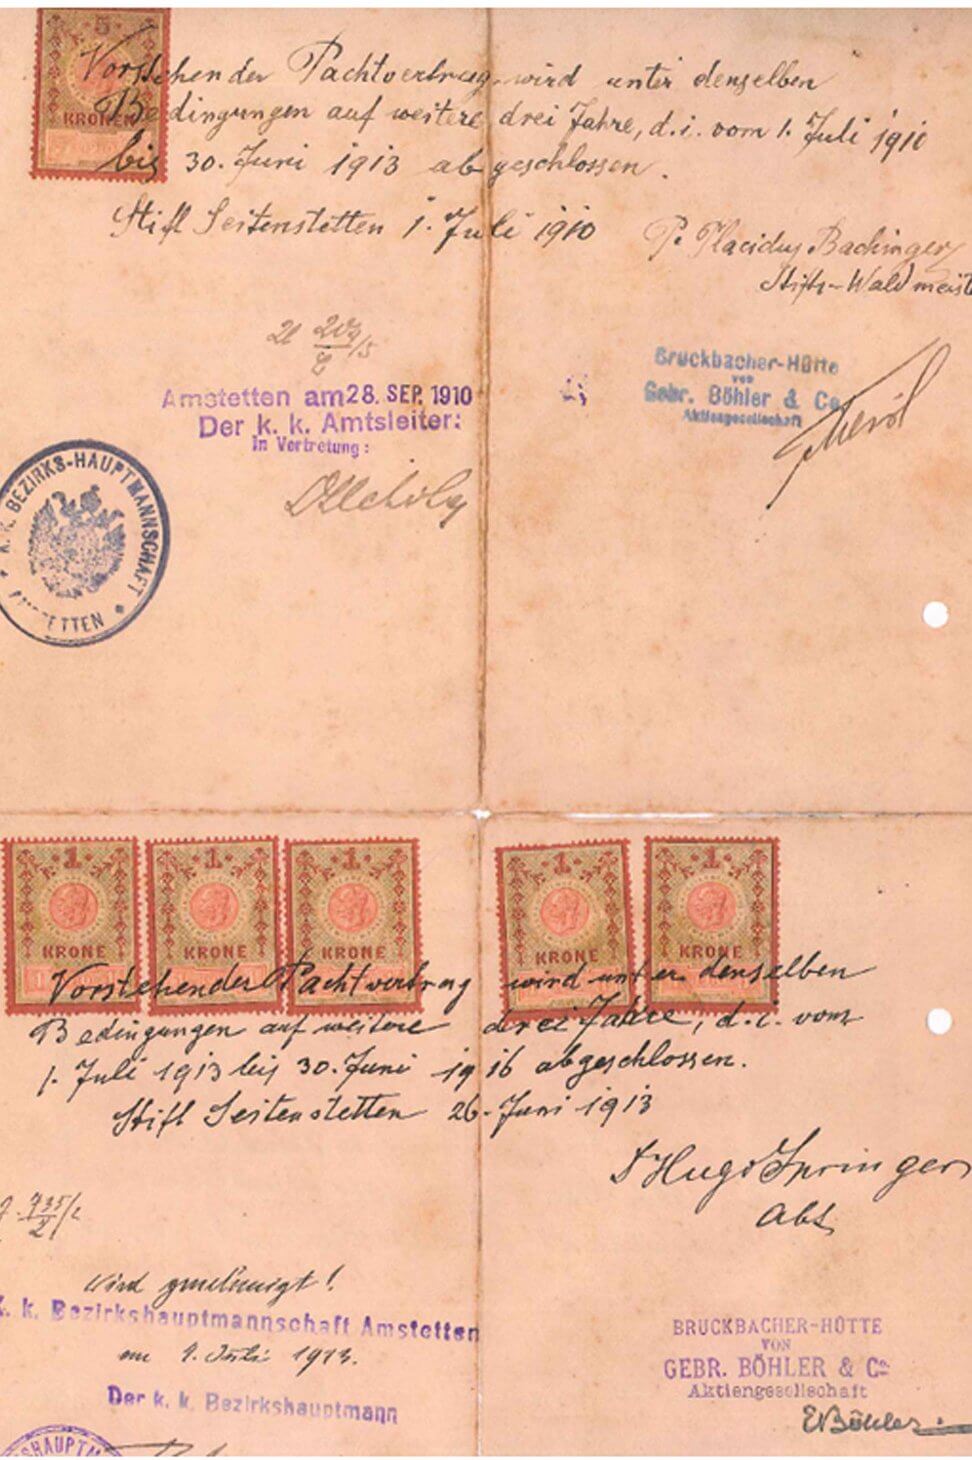 5
KRONEN
Vorstehender Pachtvertrag wird unter denselben
Bedingungen auf weitere drei Jahre, d. i. vom 1. Juli 1910
bis 30. Juni 1913 abgeschlossen.
Stift Seitenstetten 1. Juli 1910
P. Placidus Bachinger
Stifts-Waldmeist
Bruckbacher-Hütte
von
Gebr. Böhler & Co
Aktiengesellschaft
Amstetten am 28. SEP. 1910
Der k. k. Amtsleiter:
In Vertretung:
K. K. BEZIRKS-HAUPTMANNSCHAFT
AMSTETTEN
1 KRONE
1 KRONE
1 KRONE
1 KRONE
1 KRONE
Vorstehender Pachtvertrag wird unter denselben
Bedingungen auf weitere drei Jahre, d. i. vom
1. Juli 1913 bis 30. Juni 1916 abgeschlossen.
Stift Seitenstetten 26. Juni 1913
Hugo Springer
Abt
Wird genehmigt!
k. k. Bezirkshauptmannschaft Amstetten
am Juli 1913.
Der k. k. Bezirkshauptmann
BRUCKBACHER-HÜTTE
VON
GEBR. BÖHLER & Co.
Aktiengesellschaft
EBöhler
SHAUPTM